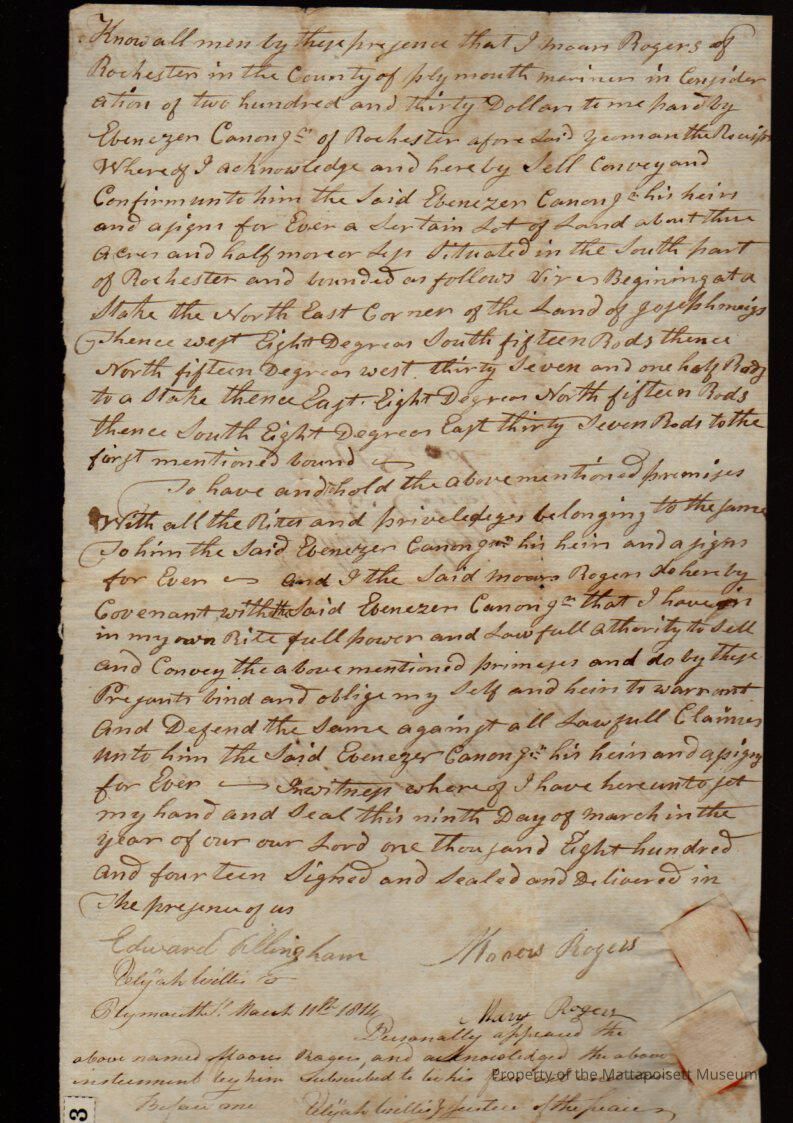 Know all men by these presence that I moars Rogers of
Rochester in the County of plymouth mariner in Consider
ation of two hundred and thirty Dollars to me paid by
Ebenezer Canon of Rochester afore said yeoman the
Whereof I acknowledge and hereby Sell Convey and
Confirm unto him the Said Ebenezer Canon his heirs
and asigns for Ever a Sertain Lot of Land about three
Acres and half more or Less Situated in the South part
of Rochester and bounded as follows Viz Begining at a
Stake the North East Corner of the Land of Joseph meigs
Thence west Eight Degrees South fifteen Rods thence
North fifteen Degrees west thirty Seven and one half Rods
to a Stake thence East Eight Degrees North fifteen Rods
thence South Eight Degrees East thirty Seven Rods to the
first mentioned bound
To have and to hold the above mentioned premises
With all the Rites and priveledges belonging to the same
To him the Said Ebenezer Canon his heirs and asigns
for Ever and I the Said moars Rogers do hereby
Covenant with the Said Ebenezer Canon that I have in
in my own Rite full power and Lawfull Athority to Sell
and Convey the above mentioned primeses and do by these
Presants bind and oblige my Self and heirs to warrant
And Defend the Same against all Lawfull Claimes
unto him the Said Ebenezer Canon his heirs and asigns
for Ever In witness where of I have hereunto set
my hand and Seal this ninth Day of march in the
year of our our Lord one thousand Eight hundred
and four teen Signed and Sealed and Delivered in
The presence of us
Edward Illingham Moors Rogers
Elijah Willis
Plymouth March 11th 1814
Rogers
Personally appeared the
above named Moors Rogers and acknowledged the above
instrument by him Subscribed to be his
Before me Elijah Willis Justice of the peace
Property of the Mattapoisett Museum
3